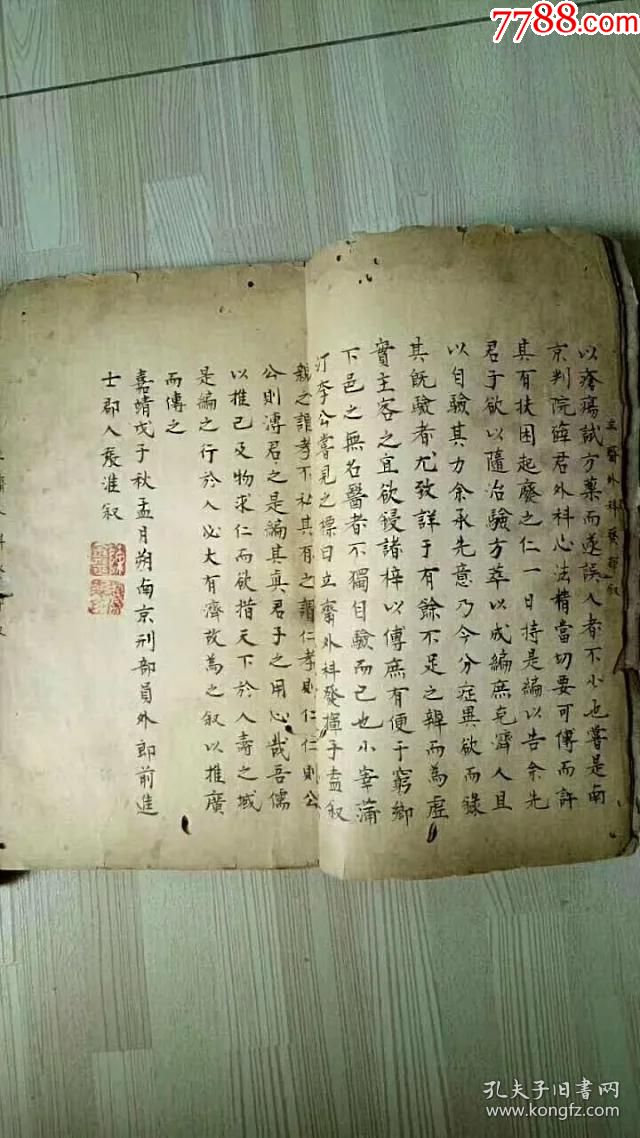 7788.com
以瘡瘍試方藥而遂誤人者不小也嘗是南
京判院薛君外科心法精當切要可傳而許
其有扶困起廢之仁一日持是編以告余先
君子欲以隨治驗方萃以成編庶克濟人且
以自驗其力余承先意乃今分症異欲而錄
其既驗者尤致詳于有餘不足之辯而為虛
實主客之宜欲侵諸梓以傳庶有便于窮鄉
下邑之無名醫者不獨自驗而已也小宰蒲
汀李公嘗見之標曰立齋外科發揮子盍叙
親之謂孝不私其有之謂仁孝則仁仁則公
公則溥君之是編其真君子之用心哉吾儒
以推己及物求仁而欲措天下於人壽之域
是編之行於人必大有濟故為之叙以推廣
而傳之
嘉靖戊子秋孟月朔南京刑部員外郎前進
士郡人張淮叙
孔夫子旧书网
www.kongfz.com